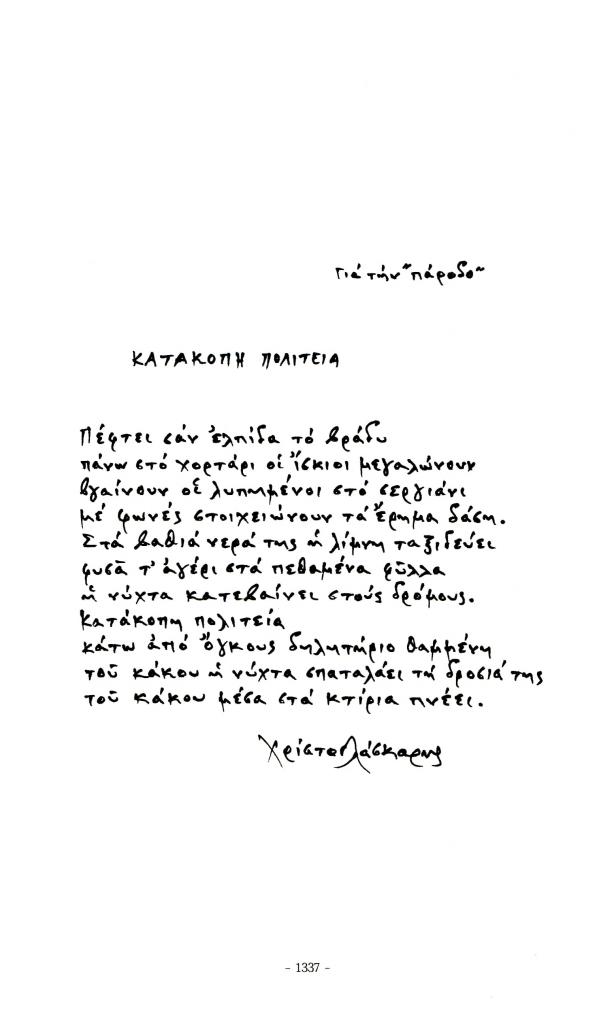 Γιά τήν "πάροδο"
ΚΑΤΑΚΟΠΗ ΠΟΛΙΤΕΙΑ
Πέφτει σάν ἐλπίδα τό βράδυ
πάνω στό χορτάρι οἱ ἴσκιοι μεγαλώνουν
βγαίνουν οἱ λυπημένοι στό σεργιάνι
μέ φωνές στοιχειώνουν τά ἔρημα δάση.
Στά βαθιά νερά της ἡ λίμνη ταξιδεύει
φυσᾶ τ' ἀγέρι στά πεθαμένα φῦλλα
ἡ νύχτα κατεβαίνει στούς δρόμους.
Κατάκοπη πολιτεία
κάτω ἀπό ὄγκους δηλητήριο θαμμένη
τοῦ κάκου ἡ νύχτα σπαταλάει τή δροσιά της
τοῦ κάκου μέσα στά κτίρια πνέει.
Χρίστος Λάσκαρης
- 1337 -